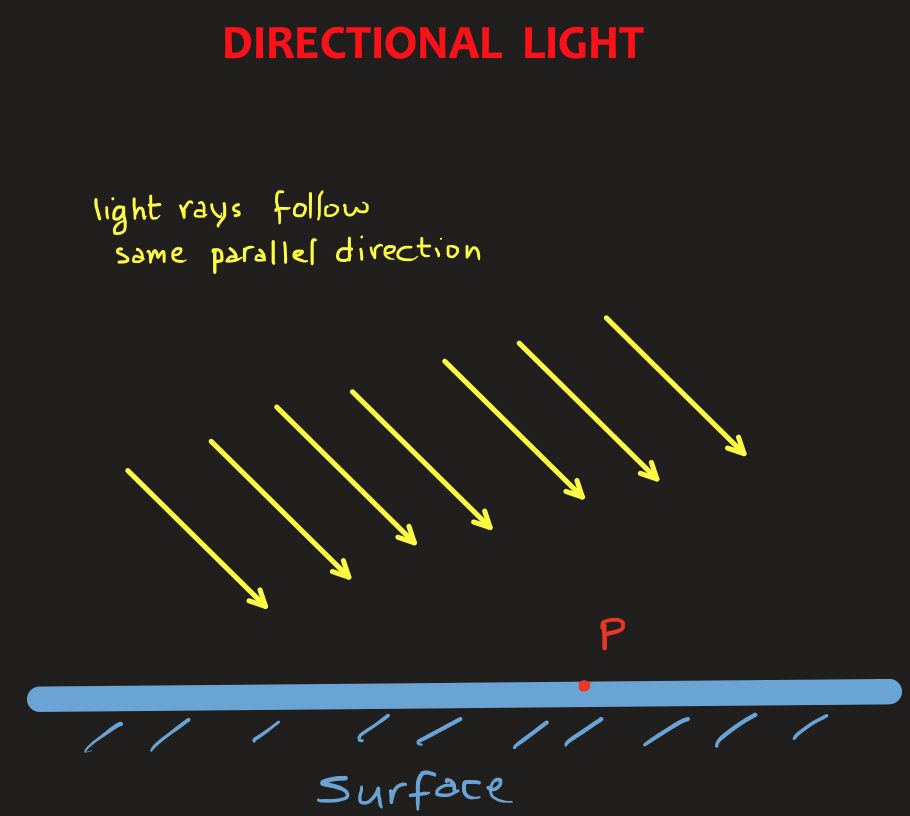 DIRECTIONAL LIGHT
light rays follow
same parallel direction
P
Surface